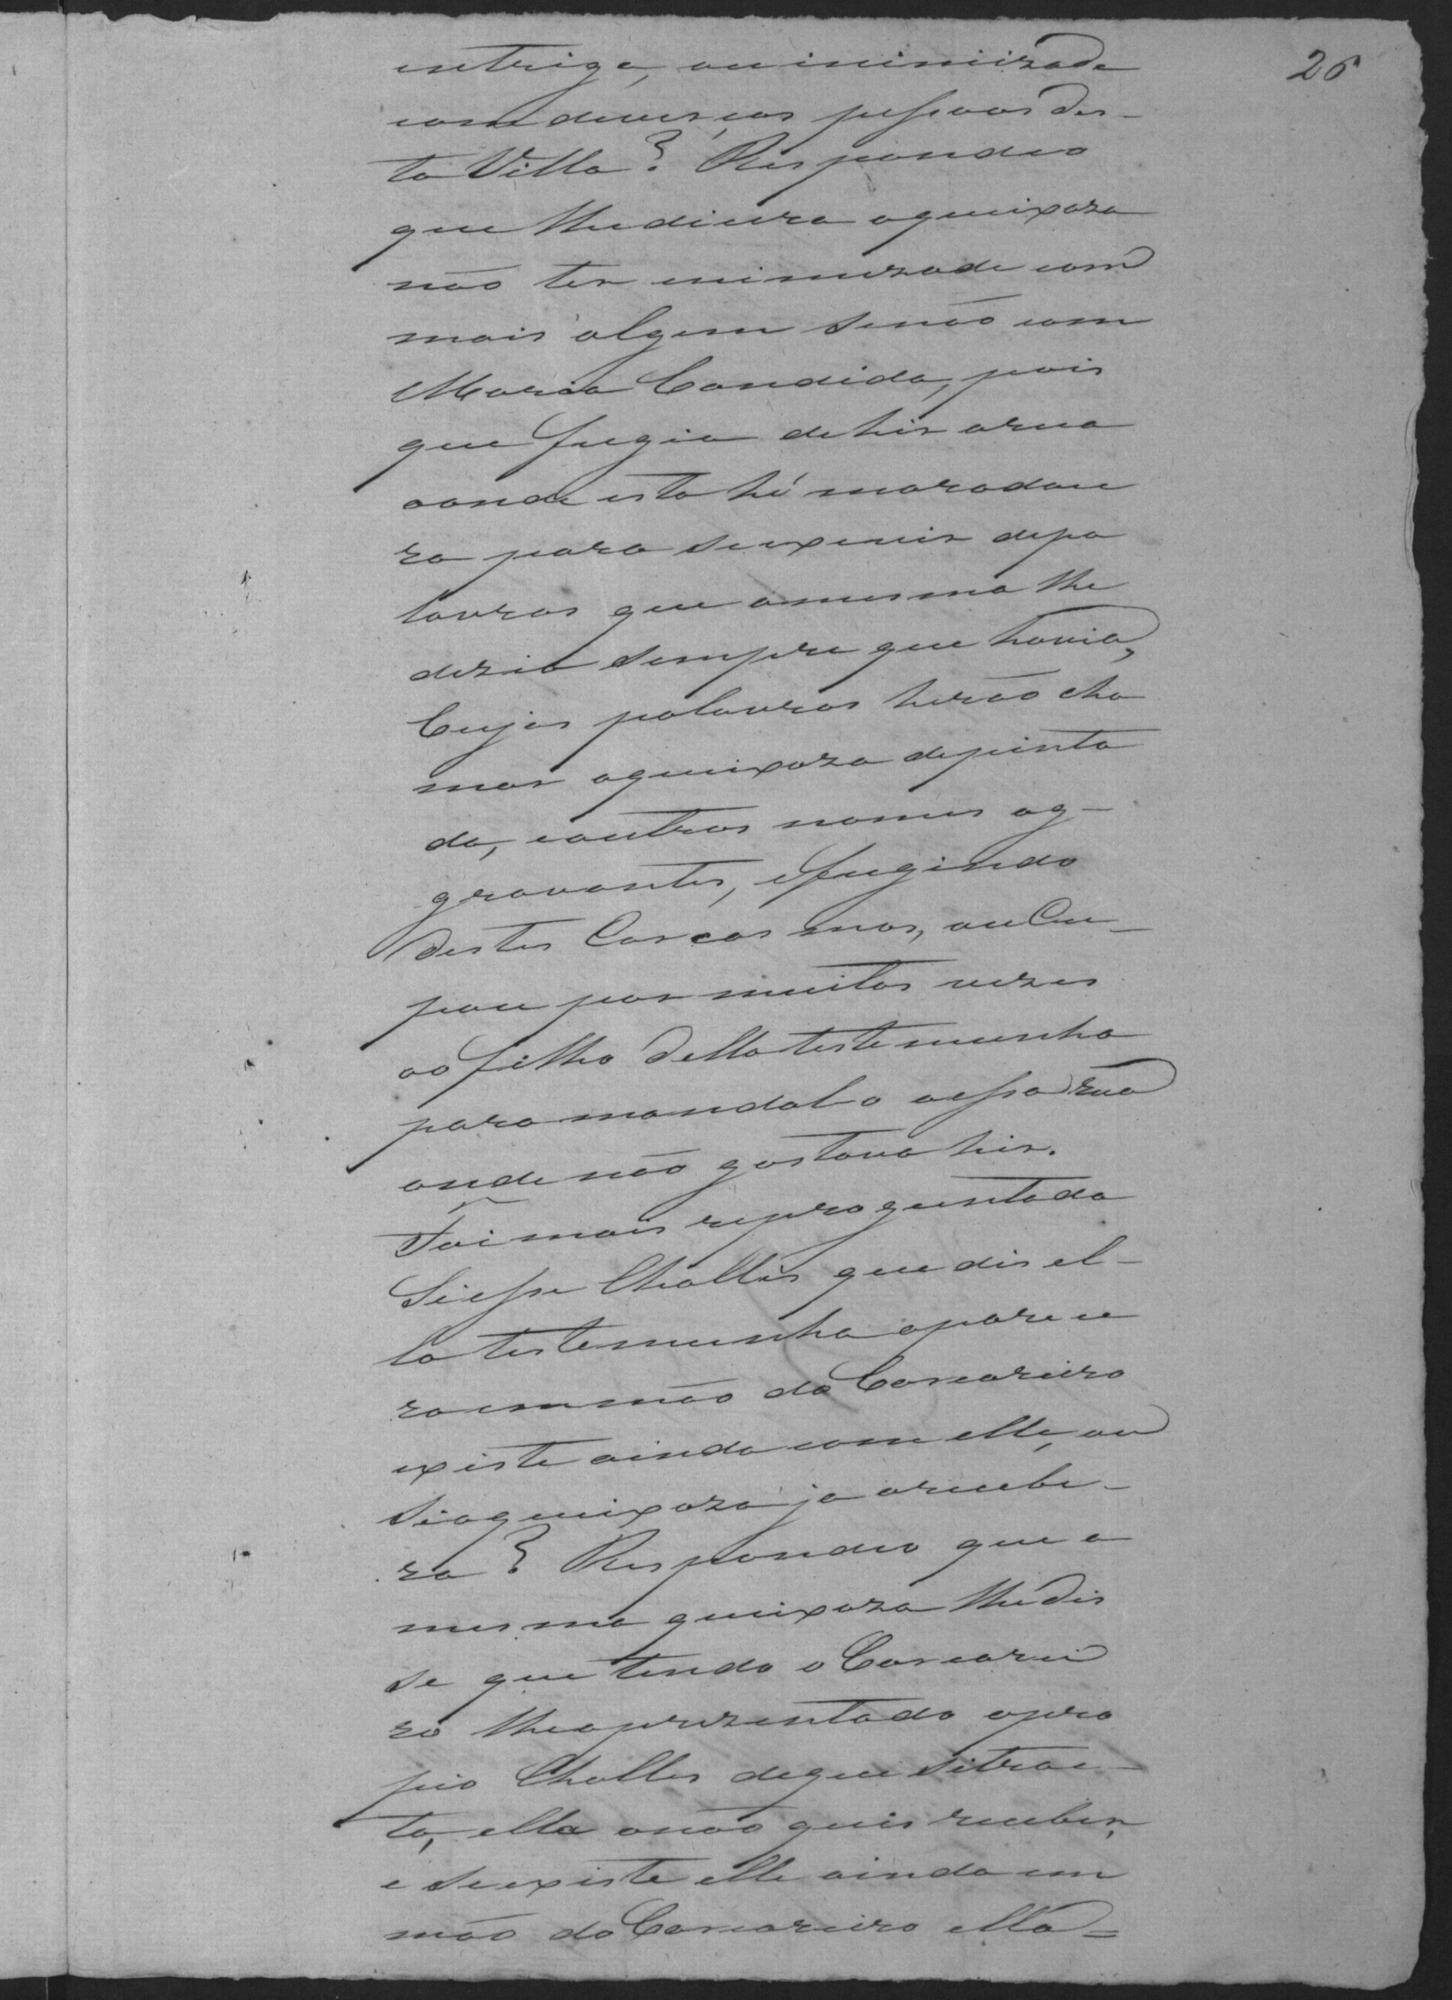 26
intriga, ou inimizade
com diverças pessoas des-
ta Villa? Respondeo
que lhe dicera aqueixoza
não ter inimizade com
mais algem senão com
Maria Candida, pois
que fugia de hir arua
aonde esta hé moradou
ra para se eximir depa
lavras que amesma lhe
dezia sempre que havia,
Cujas palavras herão cha
mar aqueixoza depinta
da, eoutros nomes ag-
gravantes, efugindo
destes Carcas mos, ocCu-
pou por muitas vezes
ao filho dellatestemunha
para mandalo aessa rua
onde não gostava hir.
Foi mais reproguntada
Si esse Challes que dis el-
la testemunha aparece
ra em mão do Carcareiro
existe ainda com elle, ou
Si aqueixoza ja arecebe-
ra? Respondeo que a
mesma queixoza lhe dis
se que tendo o Carcarei
ro lhe aprezentado opro
pio Challes deque setrac-
ta, ella onão quis receber,
e se existe elle ainda em
mão do Carcareiro ella=